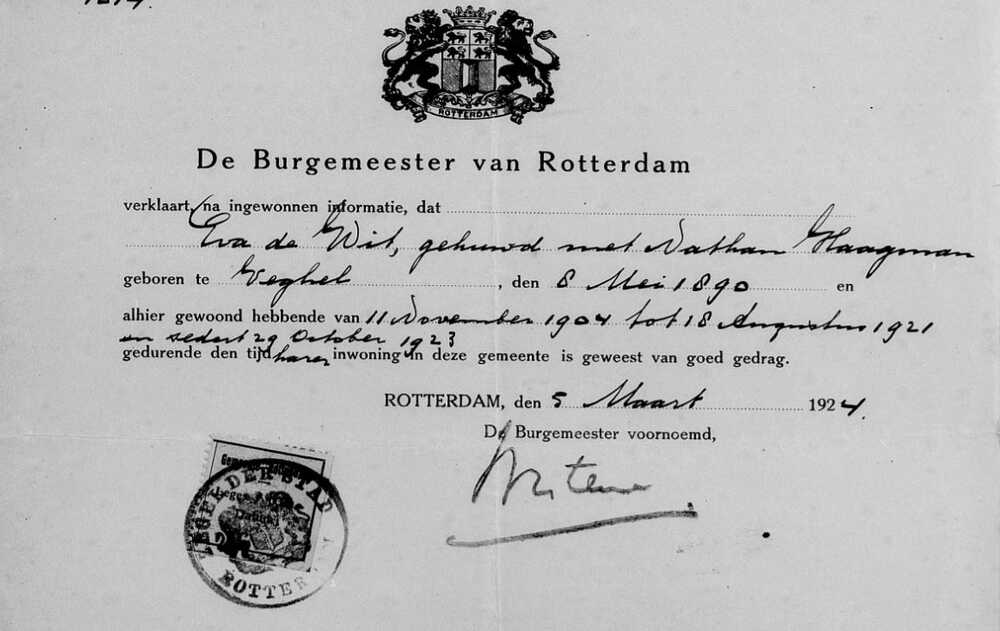 1214.
ROTTERDAM
De Burgemeester van Rotterdam
verklaart, na ingewonnen informatie, dat
Eva de Wit, gehuwd met Nathan Haagman
geboren te Veghel, den 8 Mei 1890 en
alhier gewoond hebbende van 11 November 1904 tot 18 Augustus 1921
en sedert 29 October 1923
gedurende den tijd harer inwoning in deze gemeente is geweest van goed gedrag.
ROTTERDAM, den 5 Maart 1924.
De Burgemeester voornoemd,
ZEGEL DER STAD
ROTTER